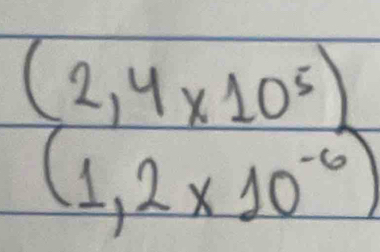 (2,4 x 10⁵)
(1,2 x 10⁻⁶)